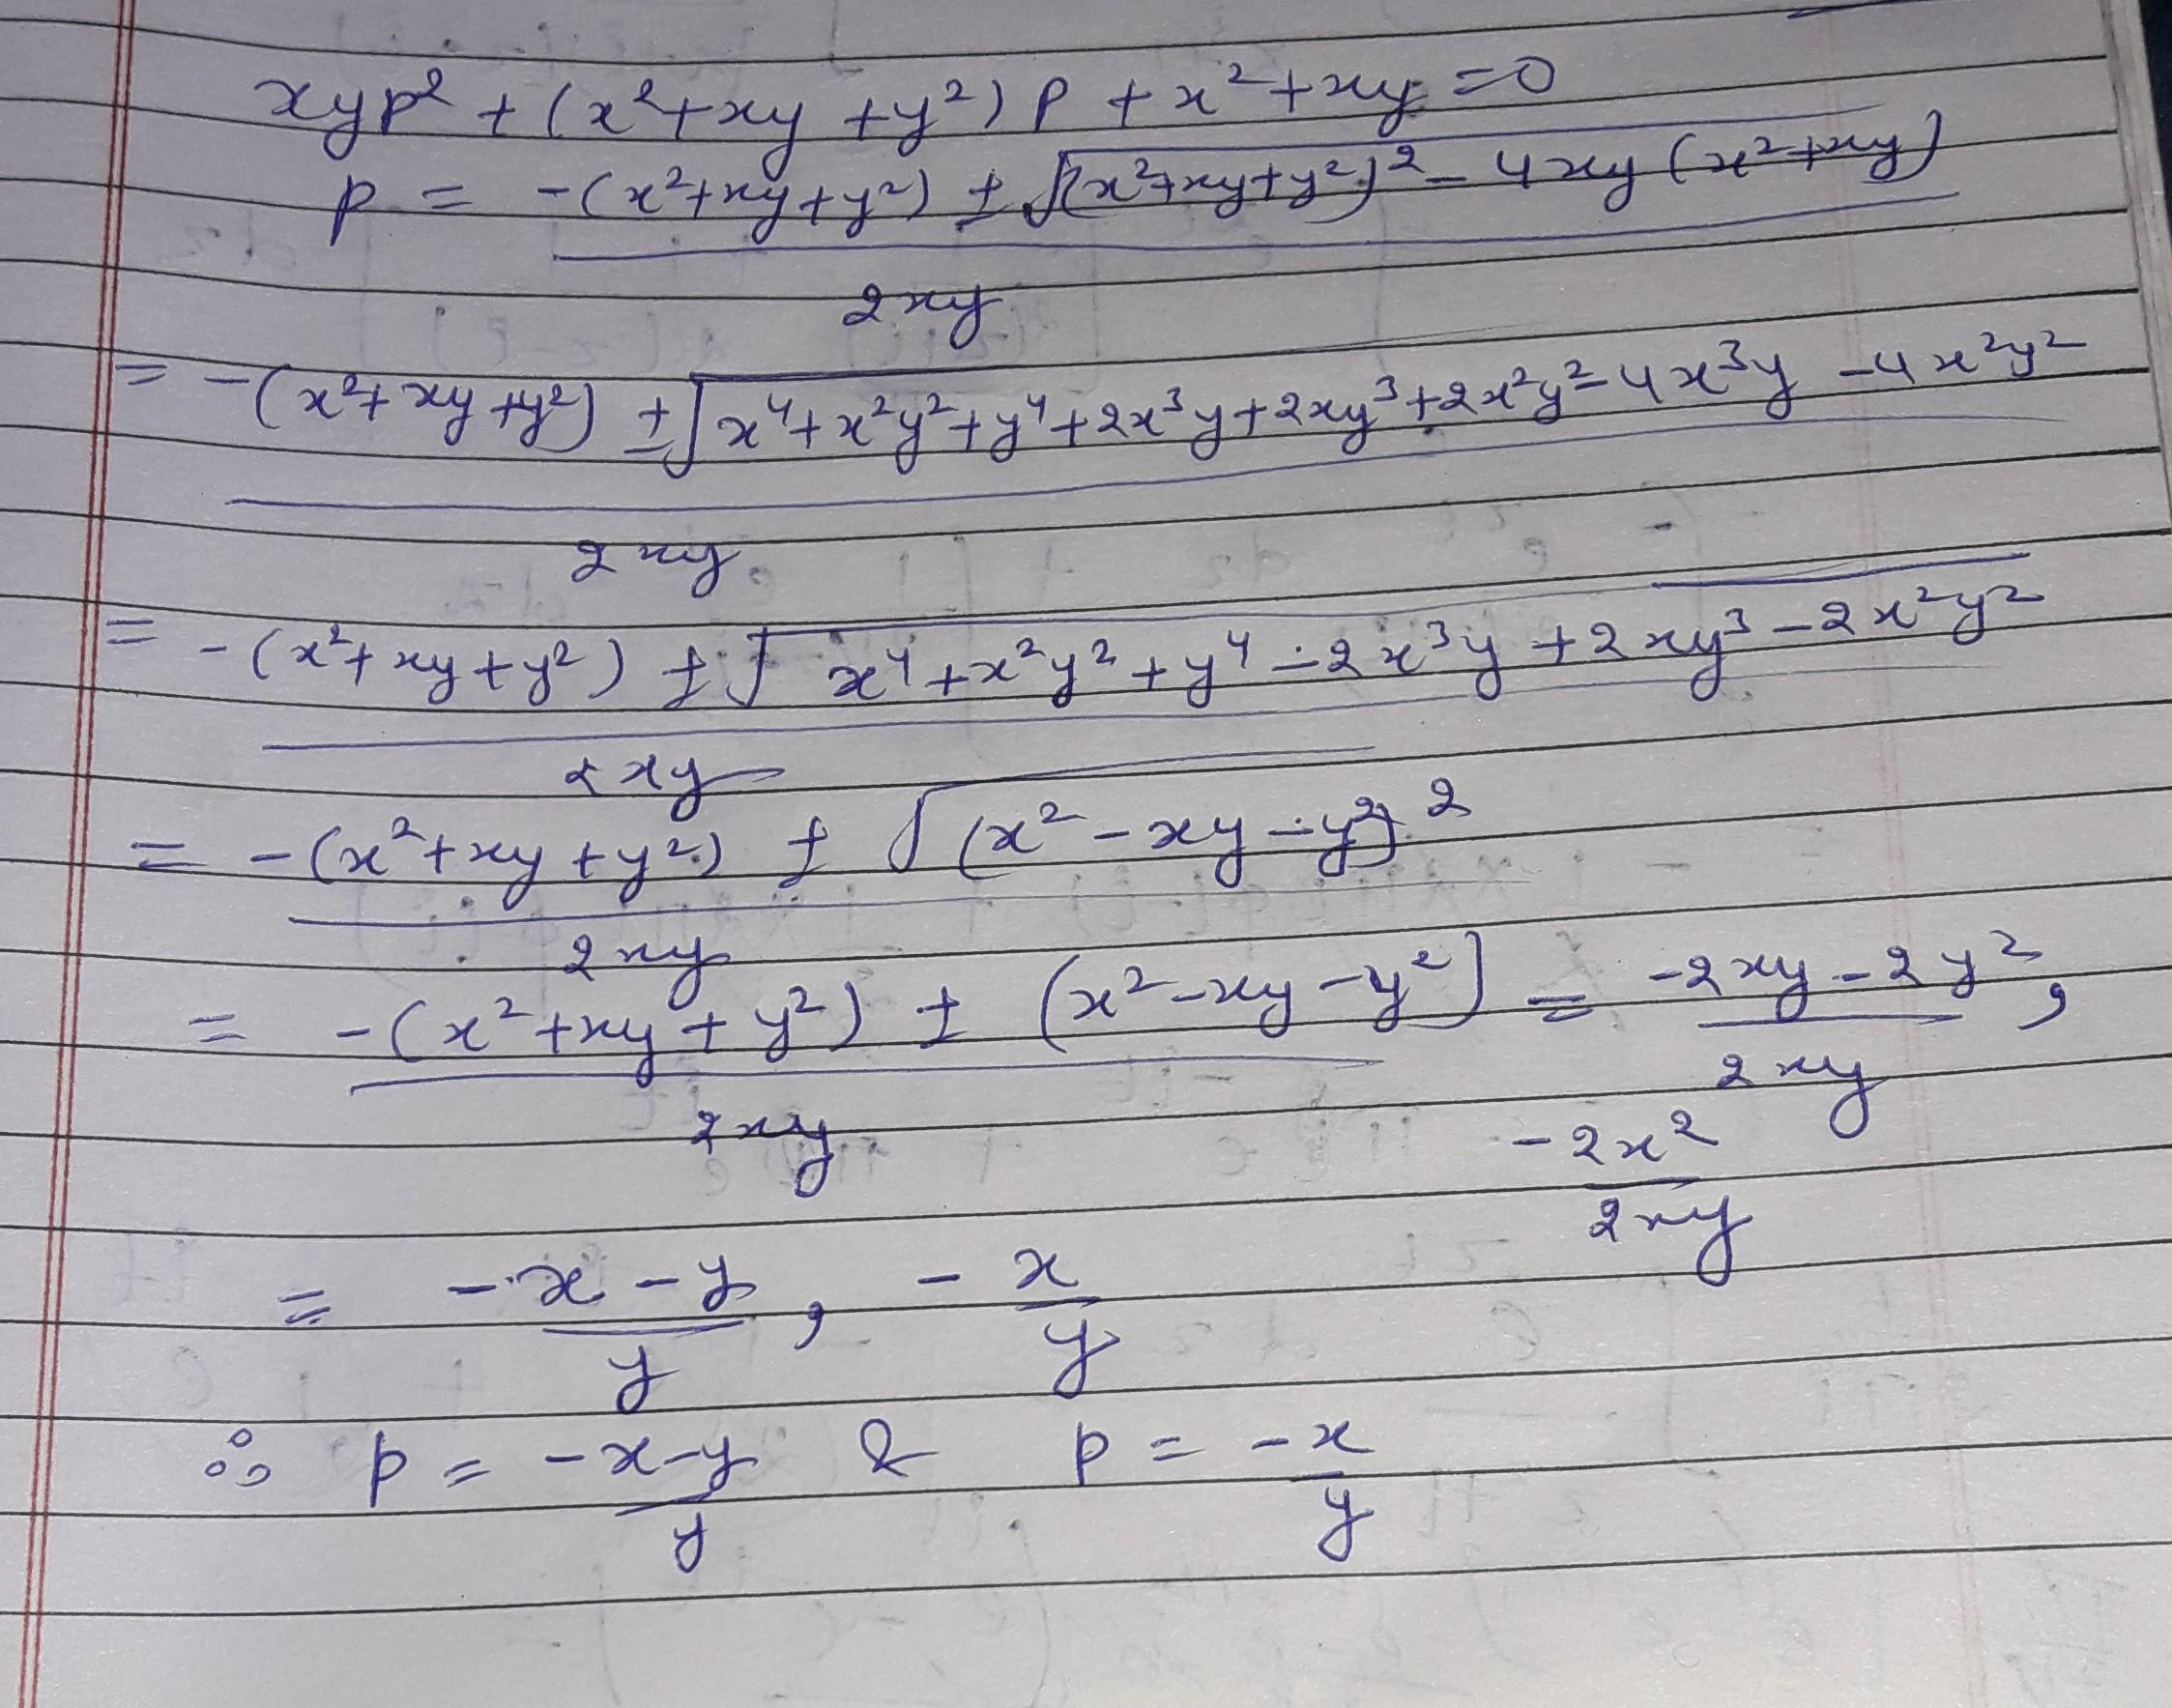 xyp² + (x² + xy + y²) p + x² + xy = 0
p = -(x² + xy + y²) ± √(x² + xy + y²)² - 4xy (x² + xy)
2xy
= -(x² + xy + y²) ± √x⁴ + x²y² + y⁴ + 2x³y + 2xy³ + 2x²y² - 4x³y - 4x²y²
2xy
= -(x² + xy + y²) ± √x⁴ + x²y² + y⁴ - 2x³y + 2xy³ - 2x²y²
2xy
= -(x² + xy + y²) ± √(x² - xy - y²)²
2xy
= -(x² + xy + y²) ± (x² - xy - y²) = -2xy - 2y² ,
2xy 2xy
-2x²
2xy
= -x - y , - x
y y
∴ p = -x-y & p = -x
y y